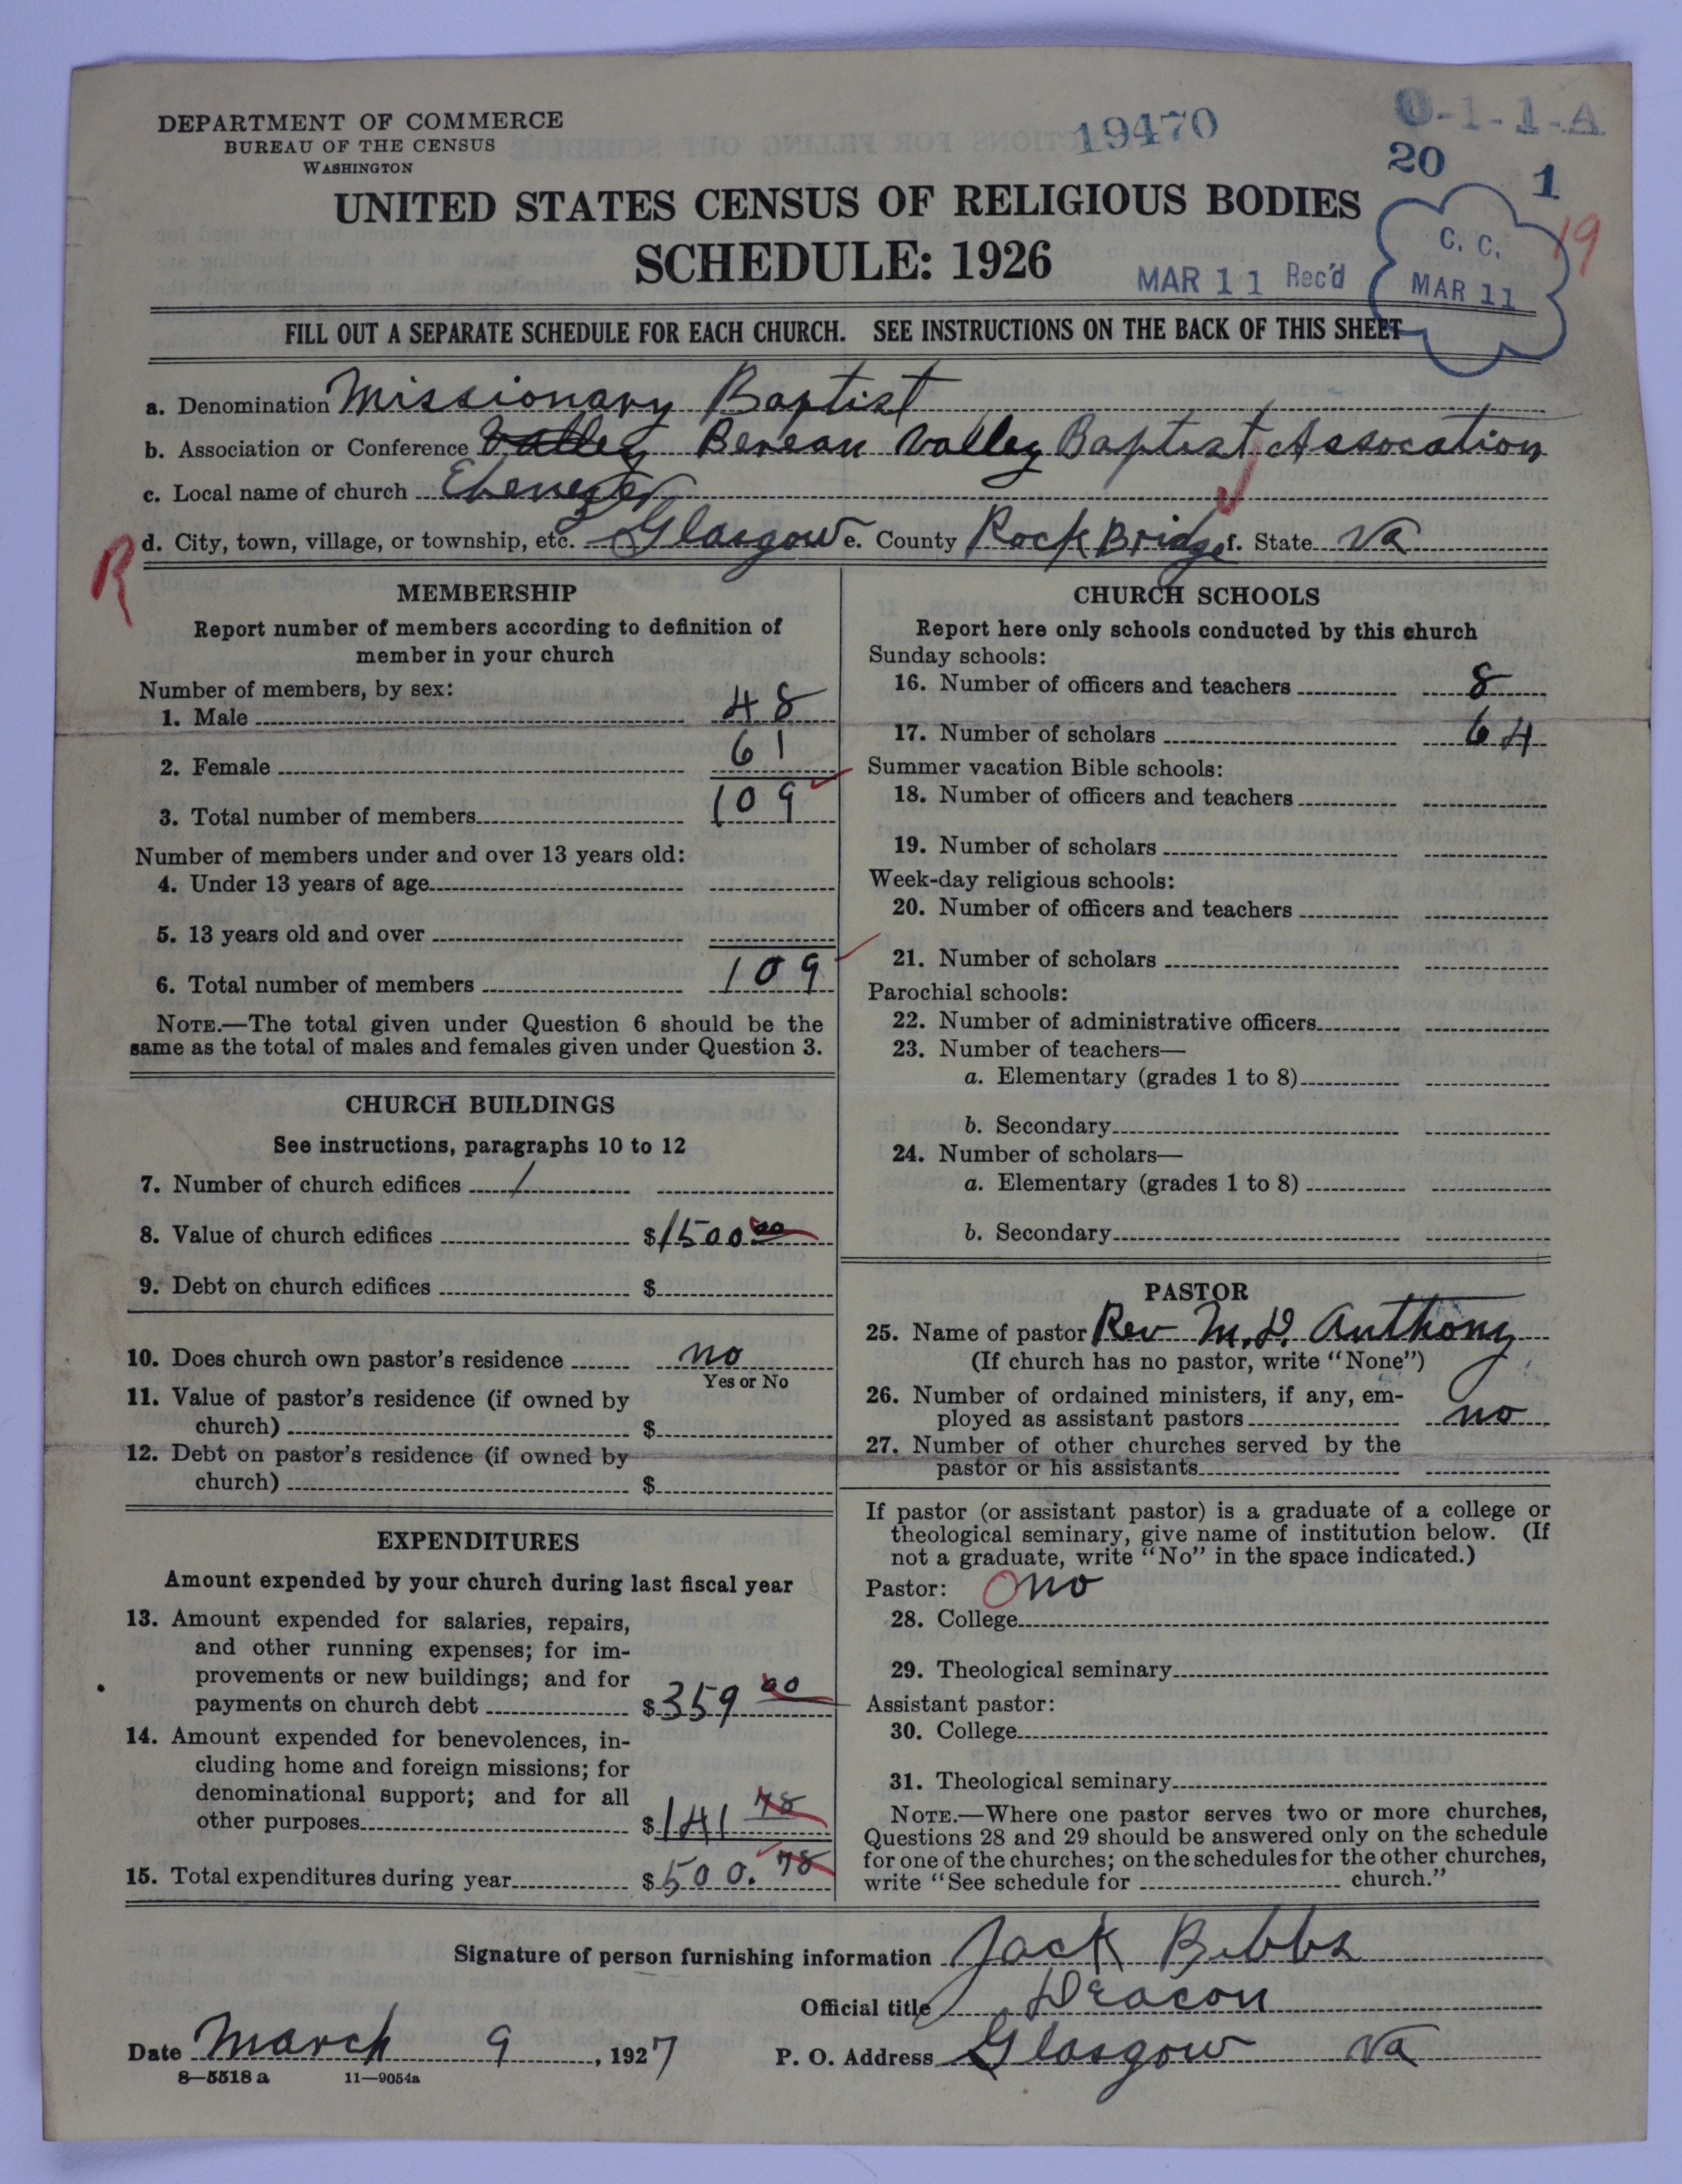 DEPARTMENT OF COMMERCE
BUREAU OF THE CENSUS
WASHINGTON
19470
0-1-1-A
20
1
19
UNITED STATES CENSUS OF RELIGIOUS BODIES
SCHEDULE: 1926
MAR 11 Rec'd
C. C.
MAR 11
FILL OUT A SEPARATE SCHEDULE FOR EACH CHURCH. SEE INSTRUCTIONS ON THE BACK OF THIS SHEET
a. Denomination Missionary Baptist
b. Association or Conference Valley Berean Valley Baptist Assocation
c. Local name of church Ebenezer
R
d. City, town, village, or township, etc. Glasgow e. County Rock Bridge f. State Va
MEMBERSHIP
Report number of members according to definition of
member in your church
Number of members, by sex:
1. Male 48
2. Female 61
3. Total number of members 109
Number of members under and over 13 years old:
4. Under 13 years of age
5. 13 years old and over
6. Total number of members 109
NOTE.—The total given under Question 6 should be the
same as the total of males and females given under Question 3.
CHURCH BUILDINGS
See instructions, paragraphs 10 to 12
7. Number of church edifices 1
8. Value of church edifices $1500 00
9. Debt on church edifices $
10. Does church own pastor's residence no
Yes or No
11. Value of pastor's residence (if owned by
church) $
12. Debt on pastor's residence (if owned by
church) $
EXPENDITURES
Amount expended by your church during last fiscal year
13. Amount expended for salaries, repairs,
and other running expenses; for im-
provements or new buildings; and for
payments on church debt $359 00
14. Amount expended for benevolences, in-
cluding home and foreign missions; for
denominational support; and for all
other purposes $141 78
15. Total expenditures during year $500. 78
CHURCH SCHOOLS
Report here only schools conducted by this church
Sunday schools:
16. Number of officers and teachers 8
17. Number of scholars 64
Summer vacation Bible schools:
18. Number of officers and teachers
19. Number of scholars
Week-day religious schools:
20. Number of officers and teachers
21. Number of scholars
Parochial schools:
22. Number of administrative officers
23. Number of teachers—
a. Elementary (grades 1 to 8)
b. Secondary
24. Number of scholars—
a. Elementary (grades 1 to 8)
b. Secondary
PASTOR
25. Name of pastor Rev M. D. Anthony
(If church has no pastor, write "None")
26. Number of ordained ministers, if any, em-
ployed as assistant pastors no
27. Number of other churches served by the
pastor or his assistants
If pastor (or assistant pastor) is a graduate of a college or
theological seminary, give name of institution below. (If
not a graduate, write "No" in the space indicated.)
Pastor: 0 no
28. College
29. Theological seminary
Assistant pastor:
30. College
31. Theological seminary
NOTE.—Where one pastor serves two or more churches,
Questions 28 and 29 should be answered only on the schedule
for one of the churches; on the schedules for the other churches,
write "See schedule for church."
Signature of person furnishing information Jack Bibbs
Official title Deacon
Date March 9, 1927 P. O. Address Glasgow Va
8—5518 a 11—9054a